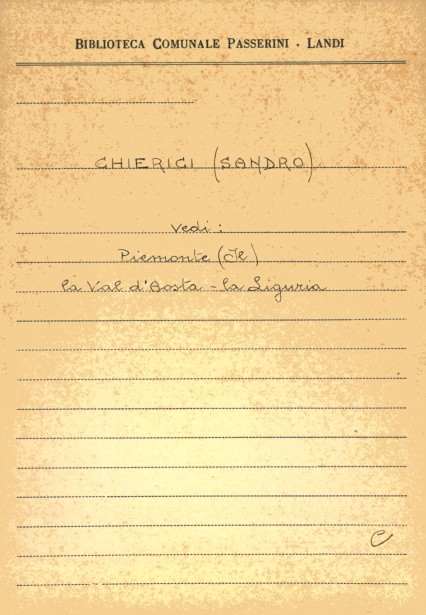 BIBLIOTECA COMUNALE PASSERINI - LANDI
CHIERICI (SANDRO)
Vedi:
Piemonte (Il)
la Val d'Aosta - la Liguria
C